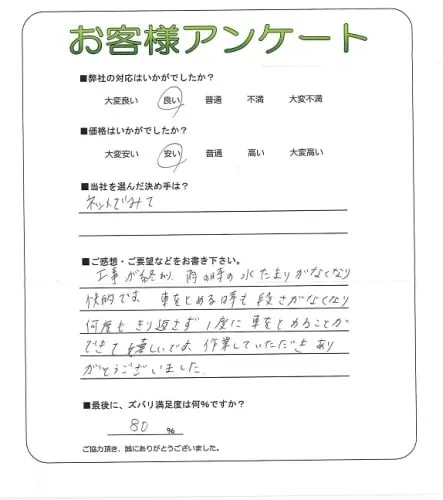 お客様アンケート
■弊社の対応はいかがでしたか？
大変良い 良い 普通 不満 大変不満
■価格はいかがでしたか？
大変安い 安い 普通 高い 大変高い
■当社を選んだ決め手は？
ネットでみて
■ご感想・ご要望などをお書き下さい。
工事が終わり、雨の時の水たまりがなくなり
快的です。車をとめる時も段さがなくなり
何度もきり返さず1度に車をとめることが
できて嬉しいです。作業していただきあり
がとうございました。
■最後に、ズバリ満足度は何％ですか？
80 %
ご協力頂き、誠にありがとうございました。